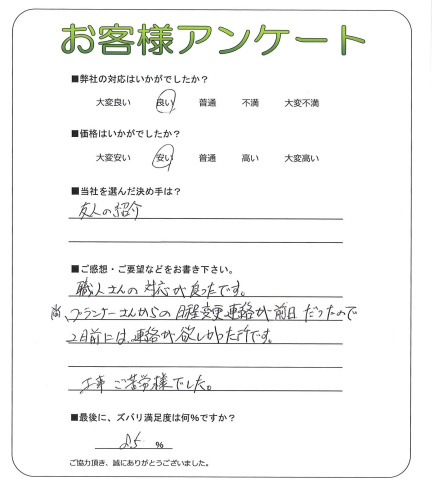 お客様アンケート
■弊社の対応はいかがでしたか？
大変良い 良い 普通 不満 大変不満
■価格はいかがでしたか？
大変安い 安い 普通 高い 大変高い
■当社を選んだ決め手は？
友人の紹介
■ご感想・ご要望などをお書き下さい。
職人さんの対応が良ったです。
尚、プランナーさんからの日程変更連絡が前日だったので
2日前には、連絡が欲しかった所です。
工事ご苦労様でした。
■最後に、ズバリ満足度は何％ですか？
85 ％
ご協力頂き、誠にありがとうございました。